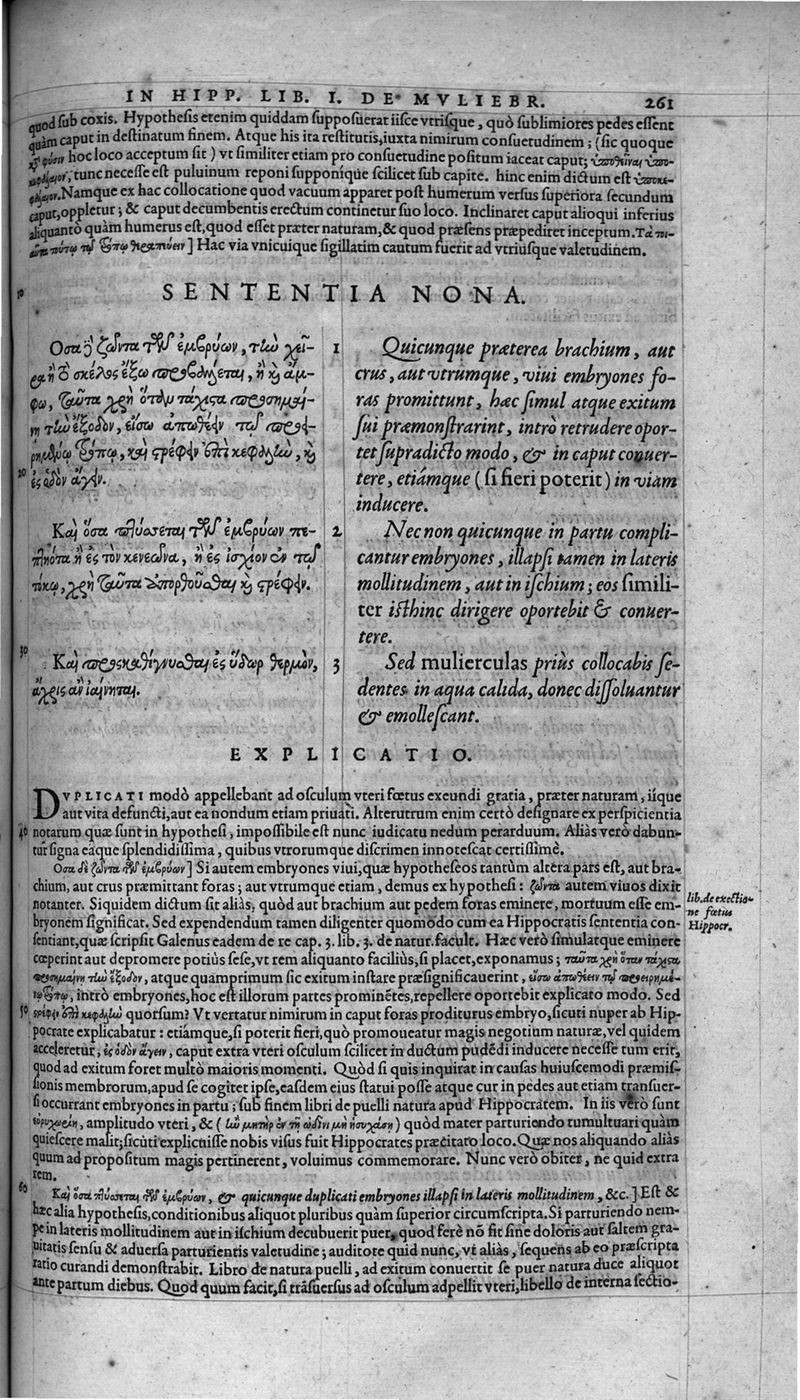 IN HIPP. LIB. I. DE MVLIEBR. 261
quod sub coxis. Hypothesis etenim quiddam supposuerat iisce vtrisque, quò sublimiores pedes essent
quàm caput in destinatum finem. Atque his ita restitutis, iuxta nimirum consuetudinem; (sic quoque
hoc loco acceptum sit) vt similiter etiam pro consuetudine positum iaceat caput;
tunc necesse est puluinum reponi supponíque scilicet sub capite. hinc enim dictum est
Namque ex hac collocatione quod vacuum apparet post humerum versus superiora secundum
caput, oppletur; & caput decumbentis erectum continetur suo loco. Inclinaret caput alioqui inferius
aliquantò quàm humerus est, quod esset præter naturam, & quod præsens præpediret inceptum.
] Hac via vnicuique sigillatim cautum fuerit ad vtriusque valetudinem.
10
SENTENTIA NONA.
Ὅσα δὲ ζῶντα τῶν ἐμβρύων, τὴν χεῖ-
ρα ἢ τὸ σκέλος ἔξω προβάλλεται, ἢ καὶ ἄμ-
φω, ταῦτα χρὴ ὅταν τάχιστα προσημήῃ
τὴν ἔξοδον, εἴσω ἀπωθεῖν τῷ προει-
ρημένῳ τρόπῳ, καὶ στρέφειν ἐπὶ κεφαλὴν, καὶ
20 ἐς ὁδὸν ἄγειν.
1 Quicunque præterea brachium, aut
crus, aut vtrumque, viui embryones fo-
ras promittunt, hæc simul atque exitum
sui præmonstrarint, intrò retrudere opor-
tet supradicto modo, & in caput conuer-
tere, etiámque (si fieri poterit) in viam
inducere.
Καὶ ὅσα πλύσεται τῶν ἐμβρύων πε-
ἢ ἐς τὸν κενεῶνα, ἢ ἐς ἰσχίον ἐν τῷ
τόκῳ, χρὴ ταῦτα ἀπορθοῦσθαι καὶ στρέφειν.
2 Nec non quicunque in partu compli-
cantur embryones, illapsi tamen in lateris
mollitudinem, aut in ischium; eos simili-
ter isthinc dirigere oportebit & conuer-
tere.
30
Καὶ προσκαθίγνυσθαι ἐς ὕδωρ θερμὸν,
ἄχρις ἂν ἰαίνηται.
3 Sed mulierculas priùs collocabis se-
dentes in aqua calida, donec dissoluantur
& emollescant.
EXPLICATIO.
DVPLICATI modò appellebant ad osculum vteri fœtus exeundi gratia, præter naturam, iique
aut vita defuncti, aut ea nondum etiam priuati. Alterutrum enim certò designare ex perspicientia
40 notarum quæ sunt in hypothesi, impossibile est nunc iudicatu nedum perarduum. Aliàs verò dabun-
tur signa eáque splendidissima, quibus vtrorumque discrimen innotescat certissimè.
Ὅσα δὲ ζῶντα τῶν ἐμβρύων] Si autem embryones viui, quæ hypotheseos tantùm altera pars est, aut bra-
chium, aut crus præmittant foras; aut vtrumque etiam, demus ex hypothesi: ζῶντα autem viuos dixit
notanter. Siquidem dictum sit aliàs, quòd aut brachium aut pedem foras eminere, mortuum esse em-
bryonem significat. Sed expendendum tamen diligenter quomodo cum ea Hippocratis sententia con-
sentiant, quæ scripsit Galenus eadem de re cap. 3. lib. 3. de natur. facult. Hæc verò simulatque eminere
cœperint aut depromere potiùs sese, vt rem aliquanto faciliùs, si placet, exponamus; ταῦτα χρὴ ὅταν τάχιστα
προσημαίνῃ τὴν ἔξοδον, atque quamprimum sic exitum instare præsignificauerint, εἴσω ἀπωθέειν τῷ προειρημέ-
νῳ τρόπῳ, intrò embryones, hoc est illorum partes prominẽtes, repellere oportebit explicato modo. Sed
50 στρέφειν ἐπὶ κεφαλὴν quorsum? Vt vertatur nimirum in caput foras proditurus embryo, sicuti nuper ab Hip-
pocrate explicabatur: etiámque, si poterit fieri, quò promoueatur magis negotium naturæ, vel quidem
acceleretur, ἐς ὁδὸν ἄγειν, caput extra vteri osculum scilicet in ductum pudẽdi inducere necesse tum erit,
quod ad exitum foret multò maioris momenti. Quòd si quis inquirat in causas huiuscemodi præmis-
sionis membrorum, apud se cogitet ipse, easdem eius statui posse atque cur in pedes aut etiam transuer-
si occurrant embryones in partu; sub finem libri de puelli natura apud Hippocratem. In iis verò sunt
amplitudo vteri, & (ἢν μήτηρ ἐν τῇ ὠδῖνι μὴ ἡσυχάσῃ) quòd mater parturiendo tumultuari quàm
quiescere malit; sicúti explicuisse nobis visus fuit Hippocrates præcitato loco. Quæ nos aliquando aliàs
quum ad propositum magis pertinerent, voluimus commemorare. Nunc verò obiter, ne quid extra
rem.
60 Καὶ ὅσα πλύσεται τῶν ἐμβρύων, & quicunque duplicati embryones illapsi in lateris mollitudinem, &c.] Est &
hæc alia hypothesis, conditionibus aliquot pluribus quàm superior circumscripta. Si parturiendo nem-
pe in lateris mollitudinem aut in ischium decubuerit puer, quod ferè nõ fit sine doloris aut saltem gra-
uitatis sensu & aduersa parturientis valetudine; auditote quid nunc, vt aliàs, sequens ab eo præscripta
ratio curandi demonstrabit. Libro de natura puelli, ad exitum conuertit se puer natura duce aliquot
ante partum diebus. Quod quum facit, si trãsuersus ad osculum adpellit vteri, libello de interna sectio-
lib. de exectio-
ne fœtus
Hippocr.